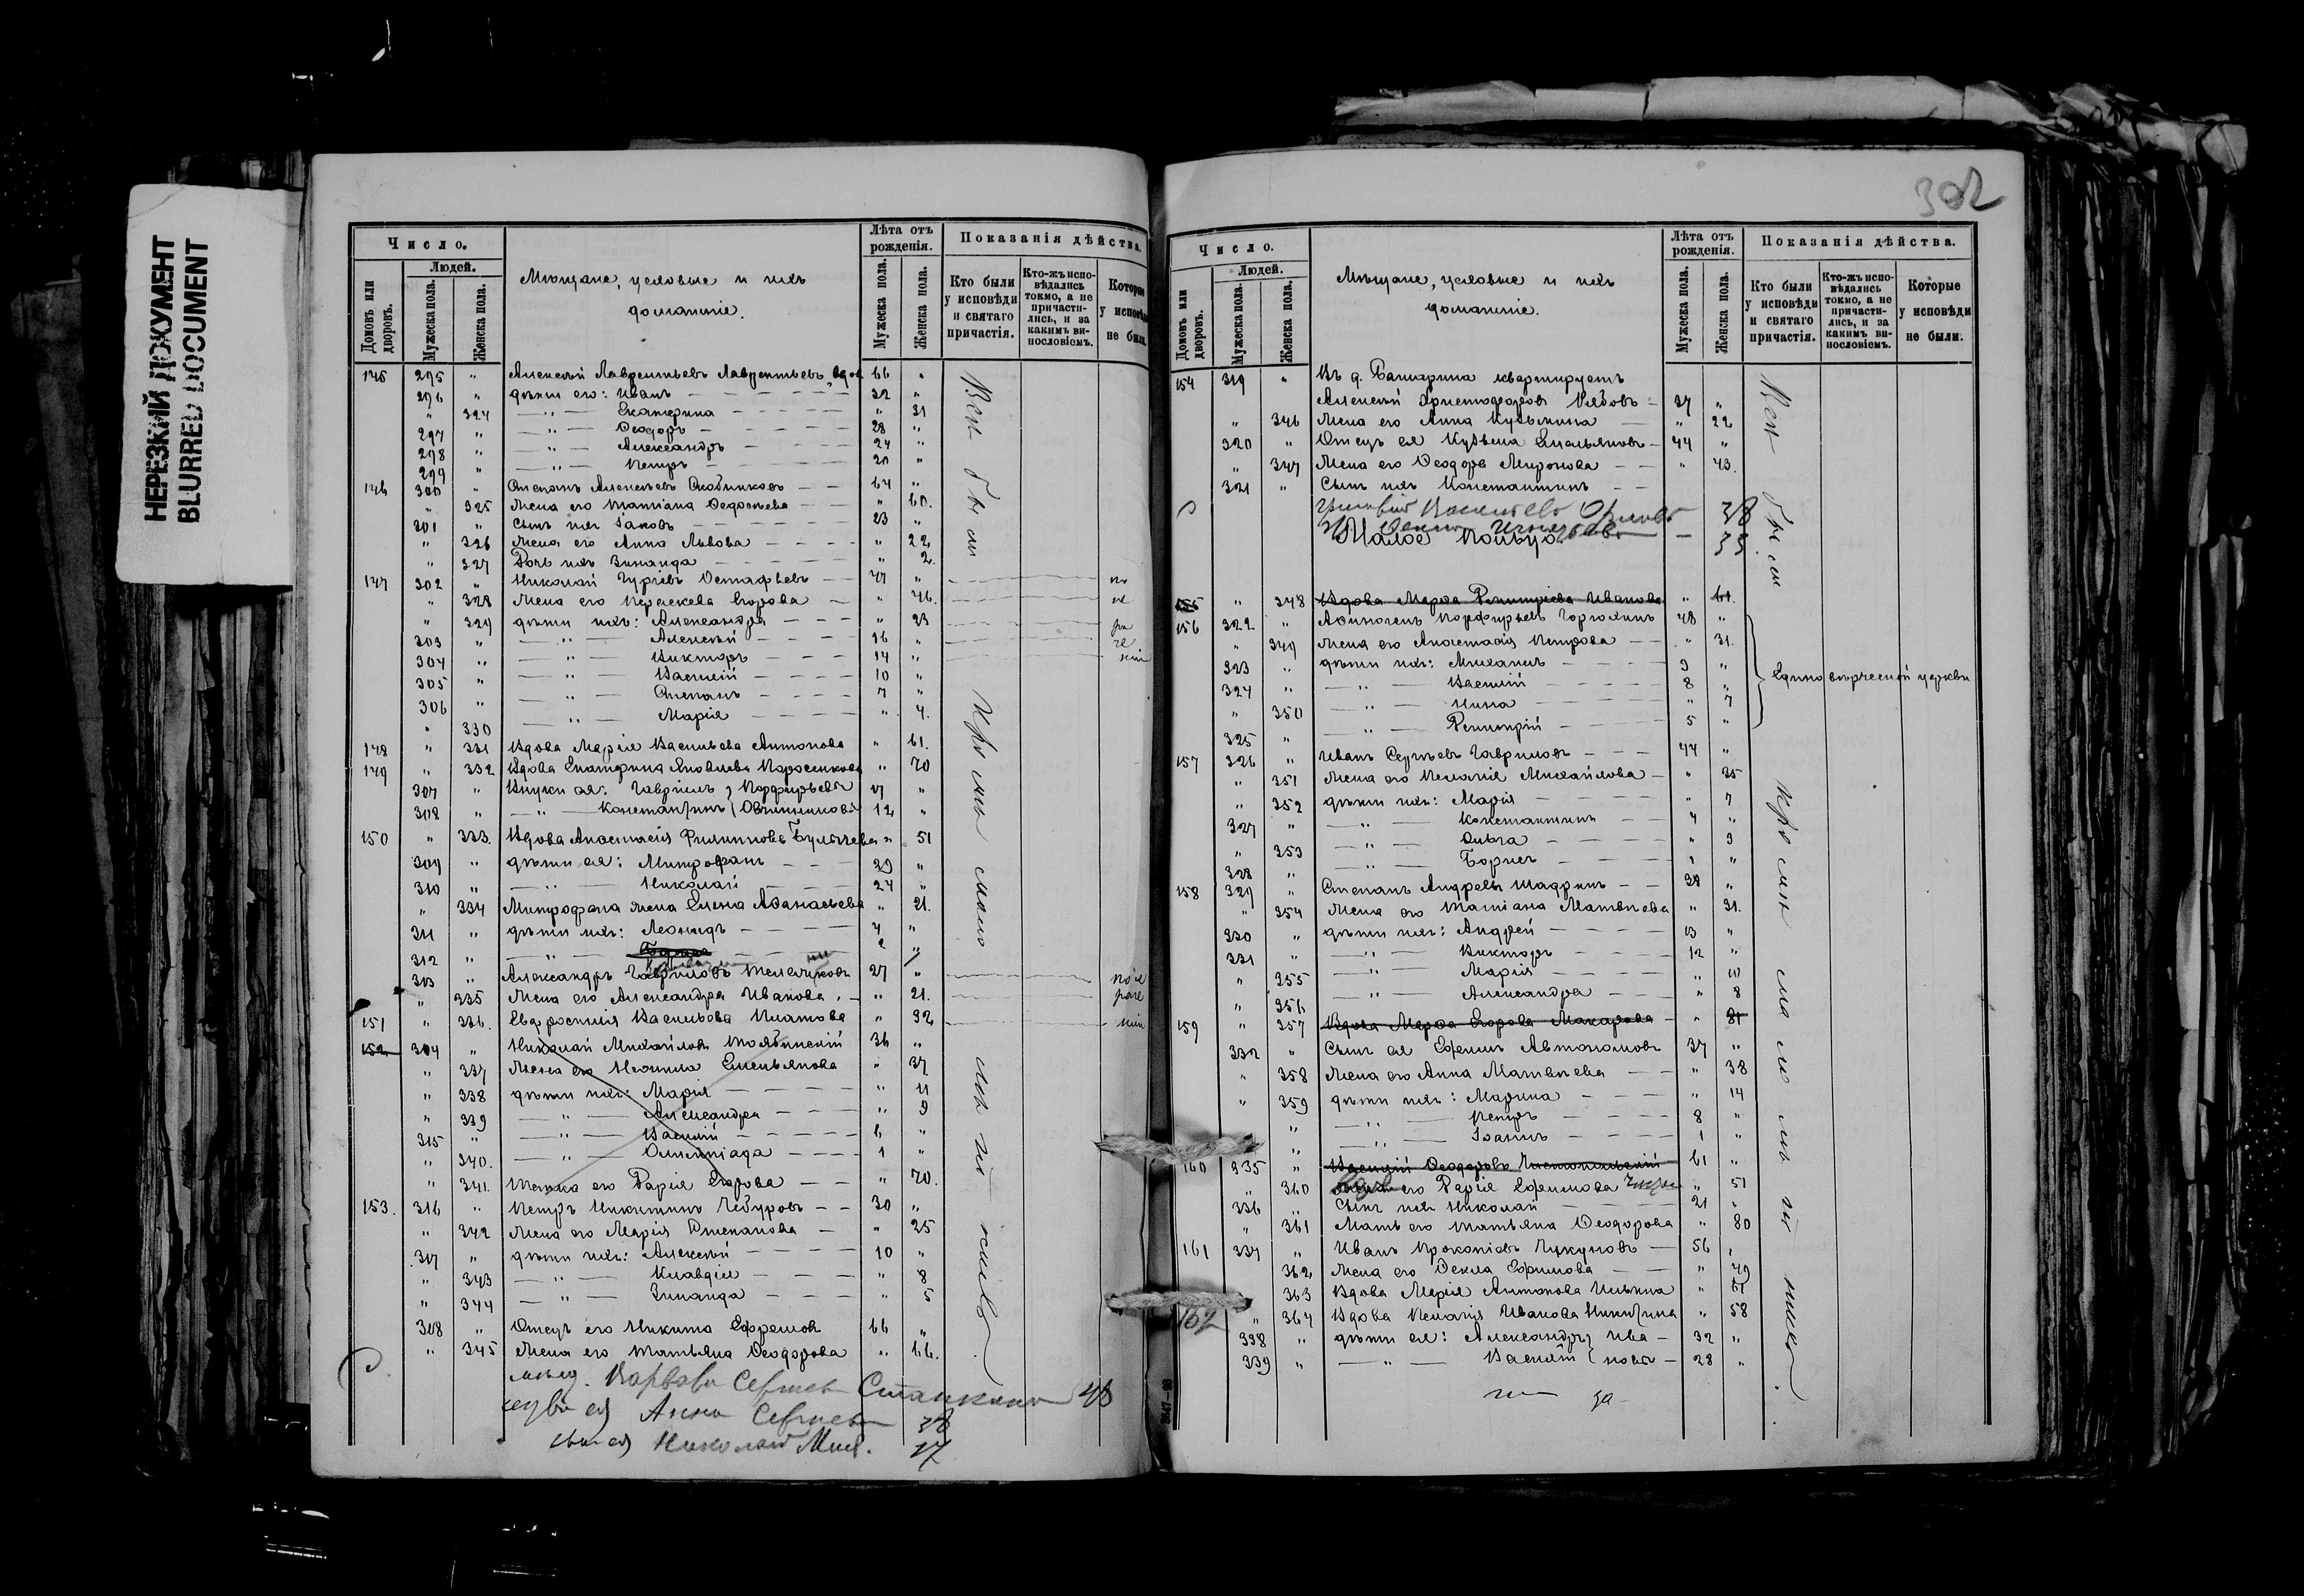 НЕРЕЗКИЙ ДОКУМЕНТ
BLURRED DOCUMENT
Число.
Людей.
Домовъ или дворовъ.
Мужеска пола.
Женска пола.
Мѣщане, цеховые и ихъ
домашніе.
Лѣта отъ рожденія.
Мужеска пола.
Женска пола.
Показанія дѣйства.
Кто были у исповѣди и святаго причастія.
Кто-жъ исповѣдались токмо, а не причастились, и за какимъ винословіемъ.
Которые у исповѣди не были.
145 295 " Алексѣй Лаврентьевъ Лаврентьевъ, вдов 66 "
296 " дѣти его: Иванъ 32 "
" 324 — " — Екатерина " 31
297 " — " — Ѳеодоръ 28 "
298 " — " — Александръ 24 "
299 " — " — Петръ 20 "
146 300 " Степанъ Алексѣевъ 64 "
" 325 Жена его Татіана Ѳедосѣева " 60.
301 " Сынъ ихъ Іаковъ 23 "
" 326 Жена его Анна Львова " 22
" 327 Дочь ихъ Зинаида " 2.
147 302 " Николай Гурьевъ Остафьевъ 47 "
" 328 Жена его Параскева Егорова " 46.
" 329 дѣти ихъ: Александра " 23
303 " — " — Алексѣй 16 "
304 " — " — Викторъ 14 "
305 " — " — Василій 10 "
306 " — " — Степанъ 7 "
" 330 — " — Марія " 4.
148 " 331 Вдова Марія Васильева Антонова " 61.
149 " 332 Вдова Екатерина Яковлева Поросенкова " 70
307 " Внуки ея: Гавріилъ } Порфирьевы 17 "
308 " — " — Константинъ } Овчинниковы 12 "
150 " 333. Вдова Анастасія Филиппова Булычева " 51
309 " дѣти ея: Митрофанъ 29 "
310 " — " — Николай 24 "
" 334 Митрофана жена Елена Аѳанасьева " 21.
311 " дѣти ихъ: Леонидъ 4 "
312 " — " — 2 "
313 " Александръ Гавриловъ 27 "
" 335 Жена его Александра Иванова " 21.
151 " 336. Евдросинія Васильева Платова " 32
152 314 " Николай Михайловъ 36 "
" 337 Жена его Неонила Емельянова " 37
" 338 дѣти ихъ: Марія " 11
" 339 — " — Александра " 9
315 " — " — Василій 6 "
" 340. — " — Олимпіада 1 "
" 341. его Дарія Егорова " 70.
153. 316 " Петръ Никитинъ Чебуровъ 30 "
" 342 Жена его Марія Степанова " 25
317 " дѣти ихъ: Алексѣй 10 "
" 343 — " — Клавдія " 8
" 344 — " — Зинаида " 5
318 " Отецъ его Никита Ефремовъ 66 "
" 345 Жена его Татьяна Ѳеодорова " 66.
Варвара Сергѣев 48
Анна Сергѣев 38
Николай Мих. 17
Всѣ были
302
Число.
Людей.
Домовъ или дворовъ.
Мужеска пола.
Женска пола.
Мѣщане, цеховые и ихъ
домашніе.
Лѣта отъ рожденія.
Мужеска пола.
Женска пола.
Показанія дѣйства.
Кто были у исповѣди и святаго причастія.
Кто-жъ исповѣдались токмо, а не причастились, и за какимъ винословіемъ.
Которые у исповѣди не были.
154 319 " Въ д. квартируетъ
Алексѣй Христофоровъ 37 "
" 346 Жена его Анна Кузьмина " 22
320 " Отецъ ея Кузьма Емельяновъ 44 "
" 347 Жена его Ѳеодора Миронова " 43.
321 " Сынъ ихъ Константинъ
38
35
155 " 348 Вдова Марѳа Димитріева Иванова " 61.
156 322 " Порфирьевъ 48 "
" 349 Жена его Анастасія Петрова " 31.
323 " дѣти ихъ: Михаилъ 9 "
324 " — " — Василій 8 "
" 350 — " — Нина " 7
325 " — " — Димитрій 5 "
Единовѣрческой церкви
157 326 " Иванъ Сергѣевъ Гавриловъ 44 "
" 351 Жена его Пелагія Михайлова " 35
" 352 дѣти ихъ: Марія " 7
327 " — " — Константинъ 4 "
" 353 — " — Ольга " 3
328 " — " — Борисъ 1 "
158 329 " Степанъ Андреевъ Шадринъ 38 "
" 354 Жена его Татіана Матвѣева " 31.
330 " дѣти ихъ: Андрей 13 "
331 " — " — Викторъ 12 "
" 355 — " — Марія " 10
" 356 — " — Александра " 8
159 " 357 Вдова Марѳа Егорова Макарова " 81
332 " Сынъ ея Ефимъ Автономовъ 37 "
" 358 Жена его Анна Матвѣева " 38
" 359 дѣти ихъ: Марина " 14
" — " — Петръ 8 "
" — " — Іоаннъ 1 "
160 335 " Василій Ѳеодоровъ 61 "
" 360 его Дарія Ефимова " 51
336 " Сынъ ихъ Николай 21 "
" 361 Мать его Татьяна Ѳеодорова " 80
161 337 " Иванъ Прокопіевъ Чукуновъ 56 "
362 Жена его Ѳекла Ефимова " 49
363 Вдова Марія Антонова Ильина "
162 " 364 Вдова Пелагія Иванова Никитина " 58
338 " дѣти ея: Александръ } Ива- 32 "
339 " — " — Василій } новы 28 "
Всѣ были
3647—98